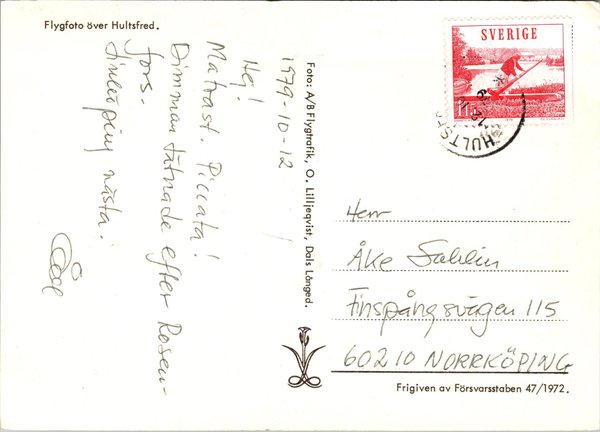 Flygfoto över Hultsfred.
1979-10-12
Hej!
Matrast. Piccata!
Dimman tätnade efter Rosen-
fors.
Linköping nästa.
Foto: A/B Flygtrafik, O. Lilljeqvist, Dals Långed.
SVERIGE
HULTSF
Herr
Åke Sahlin
Finspångsvägen 115
60210 NORRKÖPING
Frigiven av Försvarsstaben 47/1972.